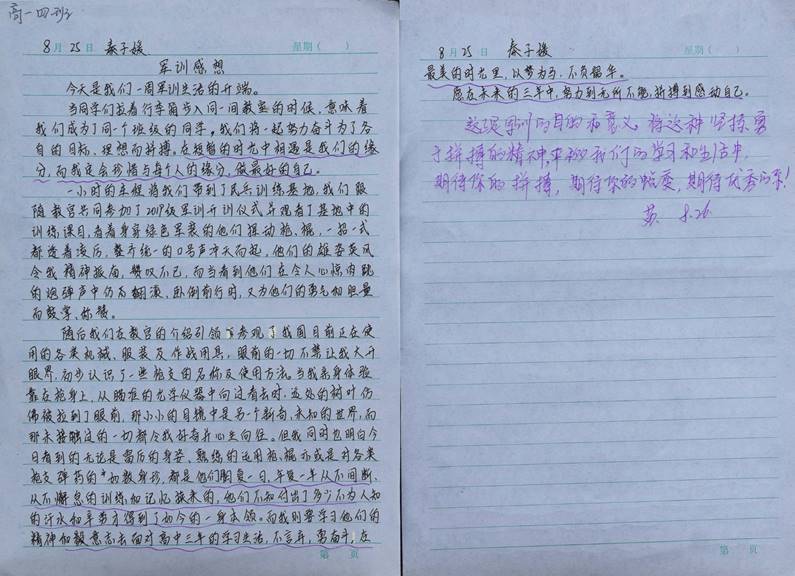 高一四班
8月25日 秦子媛 星期( )
军训感想
今天是我们一周军训生活的开端。
当同学们拉着行李箱步入同一间教室的时候,意味着
我们成为了同个班级的同学。我们将一起努力奋斗为了各
自的目标、理想而拼搏。在短暂的时光中相遇是我们的缘
分,而我定会珍惜与每个人的缘分,做最好的自己。
一小时的车程将我们带到了民兵训练基地,我们跟
随教官共同参加了2019级军训开训仪式并观看了基地中的
训练课目,看着身穿绿色军装的他们挥动枪、棍,一招一式
都透着凌厉,整齐统一的口号声冲天而起,他们的雄姿英风
令我精神振奋,赞叹不已,而当看到他们在令人心惊肉跳
的炮弹声中仍为翻滚、卧倒前行时,又为他们的勇气和胆量
而鼓掌、称赞。
随后我们在教官的介绍引领下参观了我国目前正在使
用的各类机械、服装及作战用具,眼前的一切不禁让我大开
眼界,初步认识了一些枪支的名称及使用方法。当我亲身体验
靠在枪身上,从瞄准的光学仪器中向过看去时,远处的树叶仿
佛被拉到了眼前,那小小的目镜中是另一个新奇、未知的世界,而
那未接触过的一切都令我好奇并心生向往。但我同时也明白今
日看到的无论是凌厉的身姿、熟练的运用枪棍亦或是对各类
枪支弹药的如数身珍,都是他们日复一日,年复一年从不间断、
从不懈怠的训练和记忆换来的,他们不知付出了多少不为人知
的汗水和辛劳才得到了如今的一身本领。而我则要学习他们的
精神和毅意志去面对高中三年的学习生活,不言弃,勇奋斗,在
第 页
8月25日 秦子媛 星期( )
最美的时光里,以梦为马,不负韶华。
愿在未来的三年中,努力到无所不能,拼搏到感动自己。
这是军训的目的和意义,将这种坚持勇
于拼搏的精神,平移到我们的学习和生活中,
期待你的拼搏,期待你的蜕变,期待优秀的你!
黄 8.26
第 页